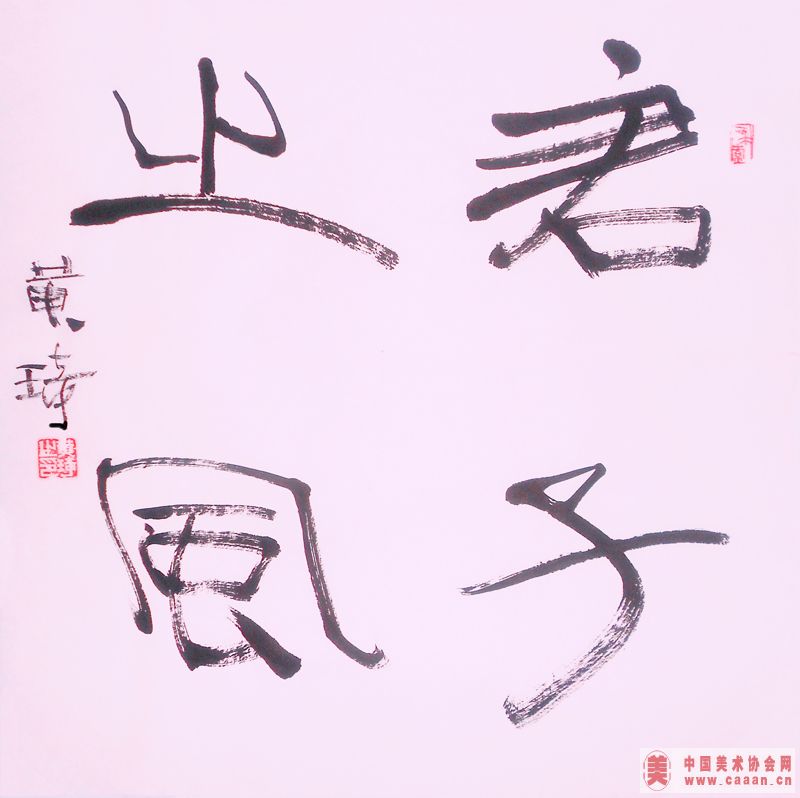 君子
之風
黄琦
中国美术协会网
www.caaan.cn